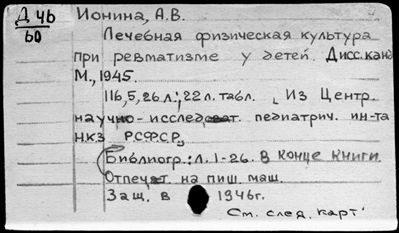 Д 46
60
Ионина, А.В.
Лечебная физическая культура
при ревматизме у детей. Дисс. канд
М., 1945.
116,5,26 л.; 22 л. табл. Из Центр.
научно-исследоват. педиатрич. ин-та
НКЗ РСФСР.
Библиогр.: л. 1-26. В конце книги.
Отпечат. на пиш. маш.
Защ. в 1946г.
См. след. карт